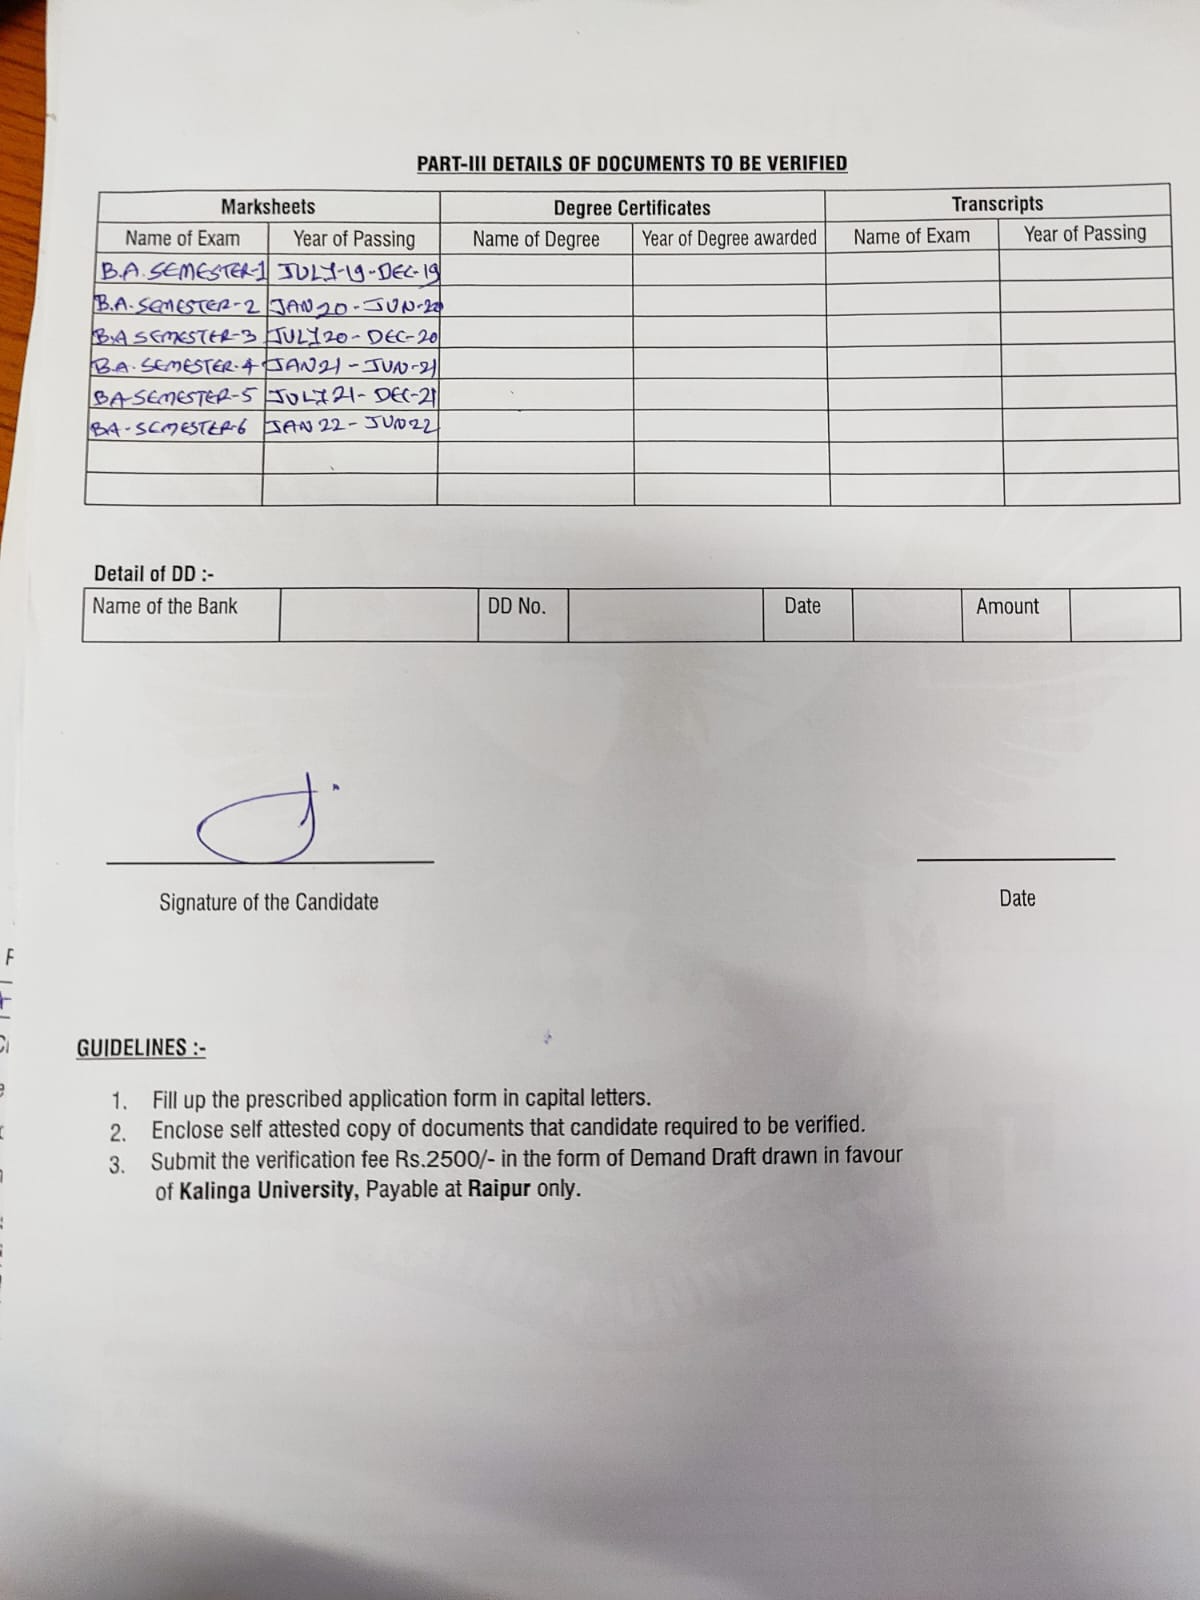 PART-III DETAILS OF DOCUMENTS TO BE VERIFIED
Marksheets Degree Certificates Transcripts
Name of Exam Year of Passing Name of Degree Year of Degree awarded Name of Exam Year of Passing
B.A. SEMESTER-1 JULY-19-DEC-19
B.A. SEMESTER-2 JAN 20 - JUN-20
B.A SEMESTER-3 JULY 20 - DEC-20
B.A. SEMESTER-4 JAN 21 - JUN-21
BA SEMESTER-5 JULY 21 - DEC-21
BA - SEMESTER-6 JAN 22 - JUN 22
Detail of DD :-
Name of the Bank DD No. Date Amount
Signature of the Candidate Date
GUIDELINES :-
1. Fill up the prescribed application form in capital letters.
2. Enclose self attested copy of documents that candidate required to be verified.
3. Submit the verification fee Rs.2500/- in the form of Demand Draft drawn in favour
of Kalinga University, Payable at Raipur only.